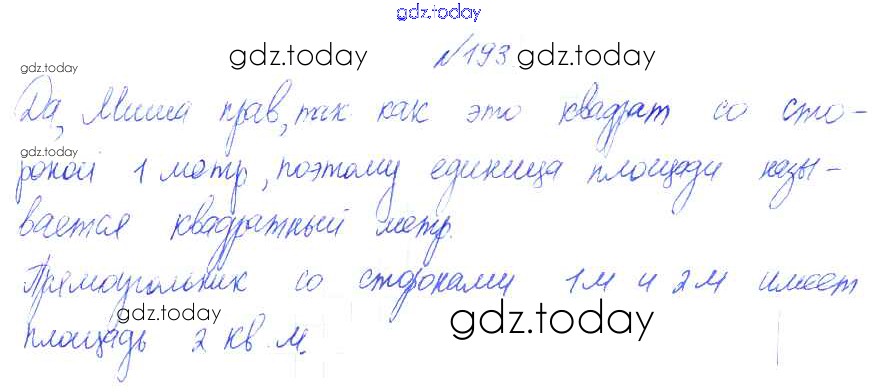 gdz.today
gdz.today №193 gdz.today
gdz.today
Да, Миша прав, так как это квадрат со сто-
gdz.today
роной 1 метр, поэтому единица площади назы-
вается квадратный метр.
Прямоугольник со сторонами 1 м и 2 м имеет
gdz.today gdz.today
площадь 2 кв. м.